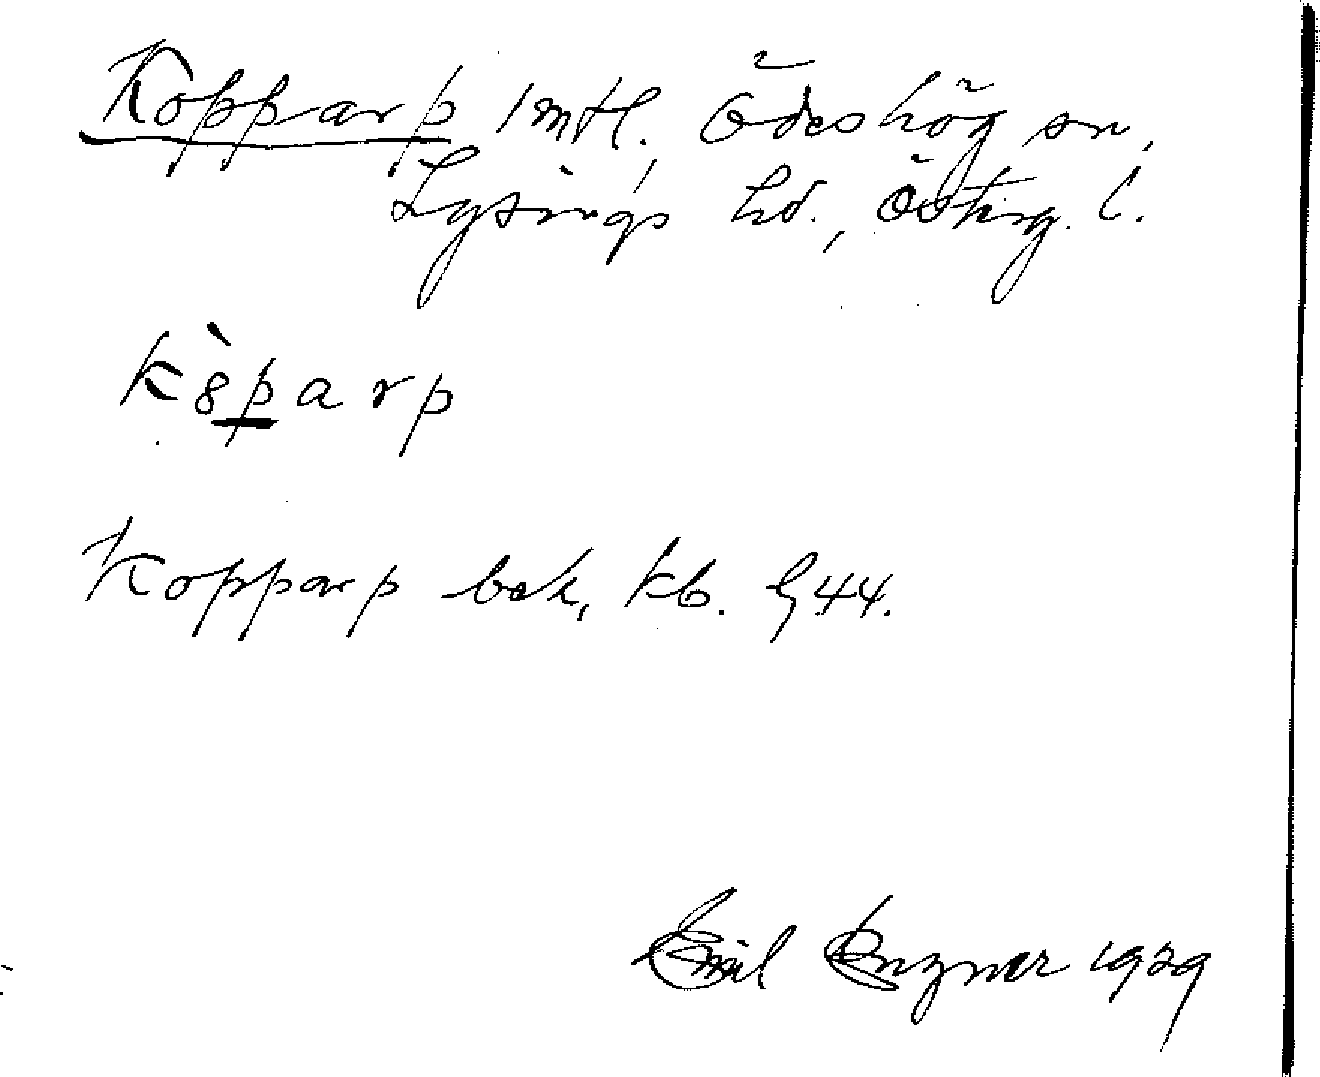 Kopparp 1 mtl., Ödeshög sn,
Lysings hd., Östg. l.
k8̀parp
Kopparp bek, kb. § 44.
Emil 1929